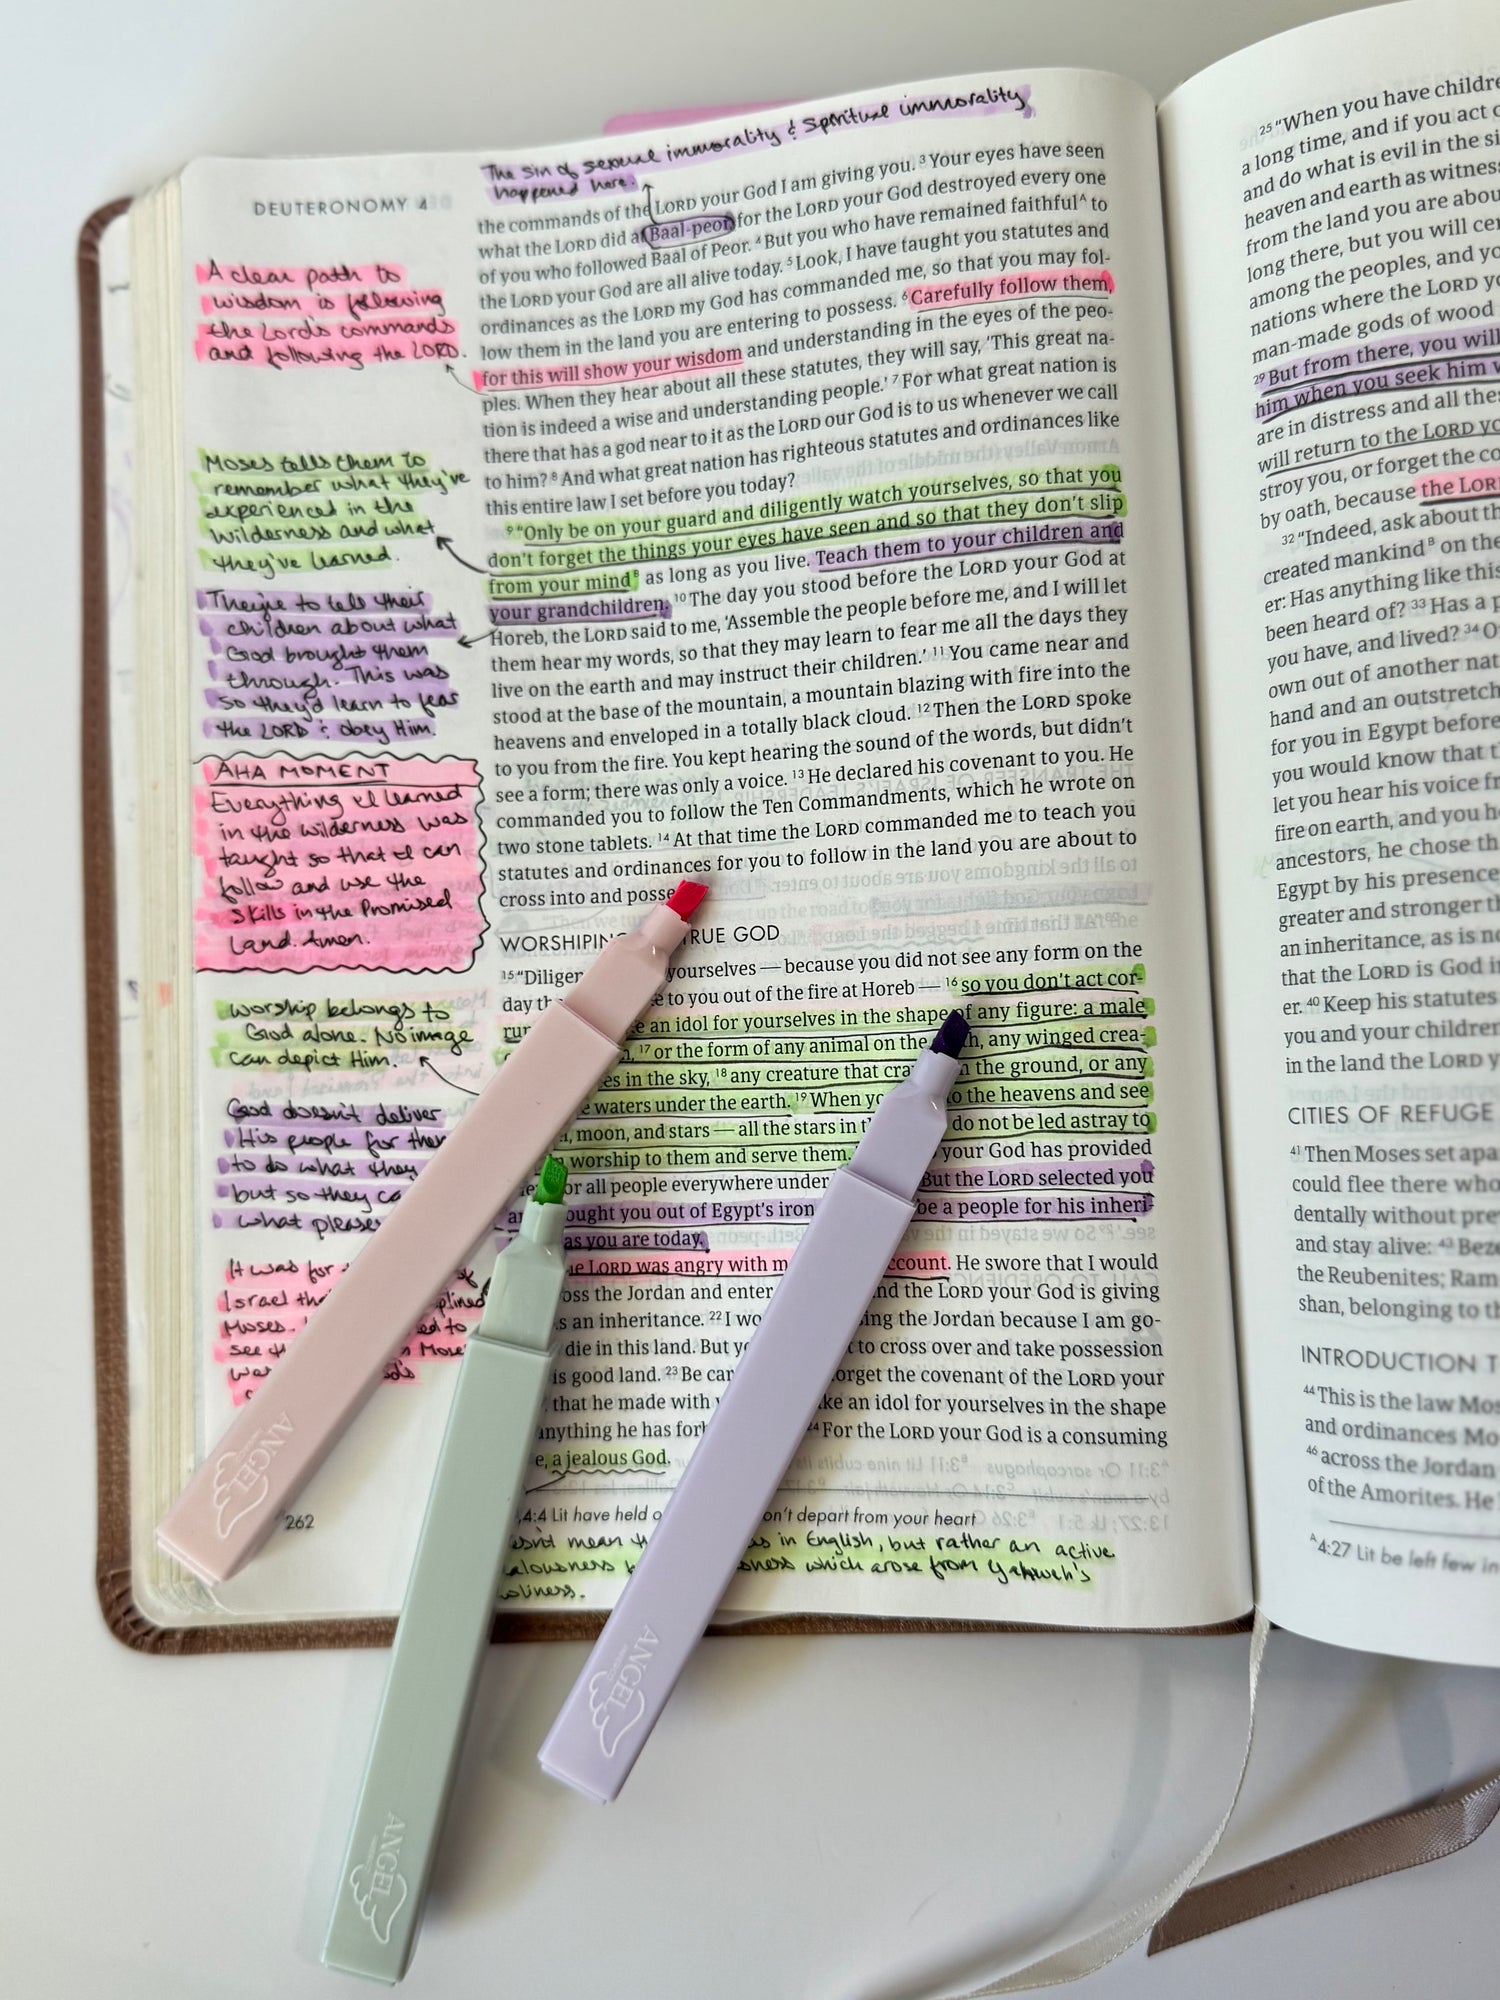 The sin of sexual immorality & spiritual immorality
happened here.
DEUTERONOMY 4
the commands of the LORD your God I am giving you. 3 Your eyes have seen
what the LORD did at Baal-peor, for the LORD your God destroyed every one
of you who followed Baal of Peor. 4 But you who have remained faithful^A to
the LORD your God are all alive today. 5 Look, I have taught you statutes and
ordinances as the LORD my God has commanded me, so that you may fol-
low them in the land you are entering to possess. 6 Carefully follow them,
for this will show your wisdom and understanding in the eyes of the peo-
ples. When they hear about all these statutes, they will say, 'This great na-
tion is indeed a wise and understanding people.' 7 For what great nation is
there that has a god near to it as the LORD our God is to us whenever we call
to him? 8 And what great nation has righteous statutes and ordinances like
this entire law I set before you today?
9 "Only be on your guard and diligently watch yourselves, so that you
don't forget the things your eyes have seen and so that they don't slip
from your mind^B as long as you live. Teach them to your children and
your grandchildren. 10 The day you stood before the LORD your God at
Horeb, the LORD said to me, 'Assemble the people before me, and I will let
them hear my words, so that they may learn to fear me all the days they
live on the earth and may instruct their children.' 11 You came near and
stood at the base of the mountain, a mountain blazing with fire into the
heavens and enveloped in a totally black cloud. 12 Then the LORD spoke
to you from the fire. You kept hearing the sound of the words, but didn't
see a form; there was only a voice. 13 He declared his covenant to you. He
commanded you to follow the Ten Commandments, which he wrote on
two stone tablets. 14 At that time the LORD commanded me to teach you
statutes and ordinances for you to follow in the land you are about to
cross into and posse
WORSHIPIN RUE GOD
15 "Diligen yourselves — because you did not see any form on the
day th e to you out of the fire at Horeb — 16 so you don't act cor-
rup e an idol for yourselves in the shape of any figure: a male
17 or the form of any animal on the h, any winged crea-
es in the sky, 18 any creature that cra n the ground, or any
e waters under the earth. 19 When yo o the heavens and see
, moon, and stars — all the stars in t do not be led astray to
n worship to them and serve them. your God has provided
or all people everywhere under But the LORD selected you
ought you out of Egypt's iron be a people for his inheri-
as you are today.
e LORD was angry with m ccount. He swore that I would
oss the Jordan and enter nd the LORD your God is giving
s an inheritance. 22 I wo ing the Jordan because I am go-
die in this land. But yo t to cross over and take possession
is good land. 23 Be car orget the covenant of the LORD your
that he made with y ke an idol for yourselves in the shape
anything he has forb 24 For the LORD your God is a consuming
e, a jealous God.
4:4 Lit have held o on't depart from your heart
esn't mean th as in English, but rather an active
alousness ousness which arose from Yahweh's
oliness.
A clear path to
wisdom is following
the Lord's commands
and following the LORD.
Moses tells them to
remember what they've
experienced in the
wilderness and what
they've learned.
They're to tell their
children about what
God brought them
through. This was
so they'd learn to fear
the LORD & obey Him.
AHA MOMENT
Everything I learned
in the wilderness was
taught so that I can
follow and use the
skills in the Promised
Land. Amen.
Worship belongs to
God alone. No image
can depict Him.
God doesn't deliver
His people for them
to do what they
but so they ca
what pleases
It was for of
Israel tha plined
Moses. ed to
see th Mose
was d's
262
ANGEL
ANGEL
ANGEL
25 "When you have childre
a long time, and if you act c
and do what is evil in the si
heaven and earth as witness
from the land you are abou
long there, but you will cer
among the peoples, and yo
nations where the LORD yo
man-made gods of wood
29 But from there, you will
him when you seek him w
are in distress and all thes
will return to the LORD yo
stroy you, or forget the co
by oath, because the LOR
32 "Indeed, ask about th
created mankind^B on the
er: Has anything like this
been heard of? 33 Has a p
you have, and lived? 34 O
own out of another nat
hand and an outstretch
for you in Egypt before
you would know that t
let you hear his voice fr
fire on earth, and you h
ancestors, he chose th
Egypt by his presence
greater and stronger th
an inheritance, as is no
that the LORD is God i
er. 40 Keep his statutes
you and your children
in the land the LORD y
CITIES OF REFUGE
41 Then Moses set apa
could flee there who
dentally without prev
and stay alive: 43 Beze
the Reubenites; Ram
shan, belonging to th
INTRODUCTION T
44 This is the law Mos
and ordinances Mo
46 across the Jordan
of the Amorites. He
^A 4:27 Lit be left few in